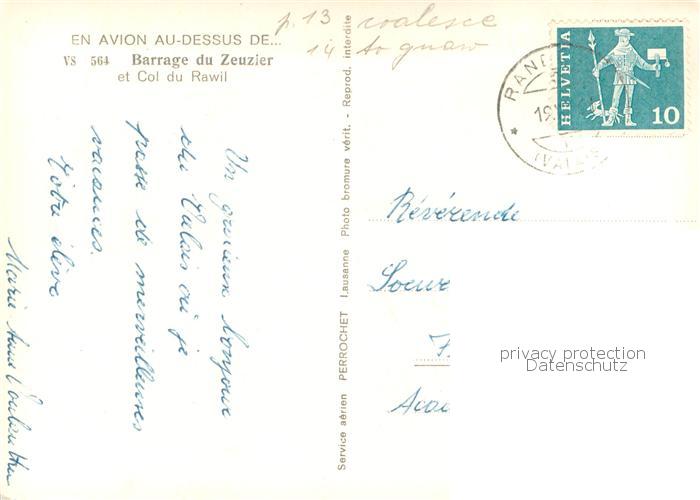 p. 13 coalesce
14 to gnaw
EN AVION AU-DESSUS DE...
VS 564 Barrage du Zeuzier
et Col du Rawil
Un gracieux bonjour
du Valais où je
passe de merveilleuses
vacances.
Votre élève
Marie Anne
Service aérien PERROCHET Lausanne Photo bromure vérit. - Reprod. interdite
HELVETIA
10
RAND
19
(VALAIS)
Révérende
Soeur
F.
Acad
privacy protection
Datenschutz